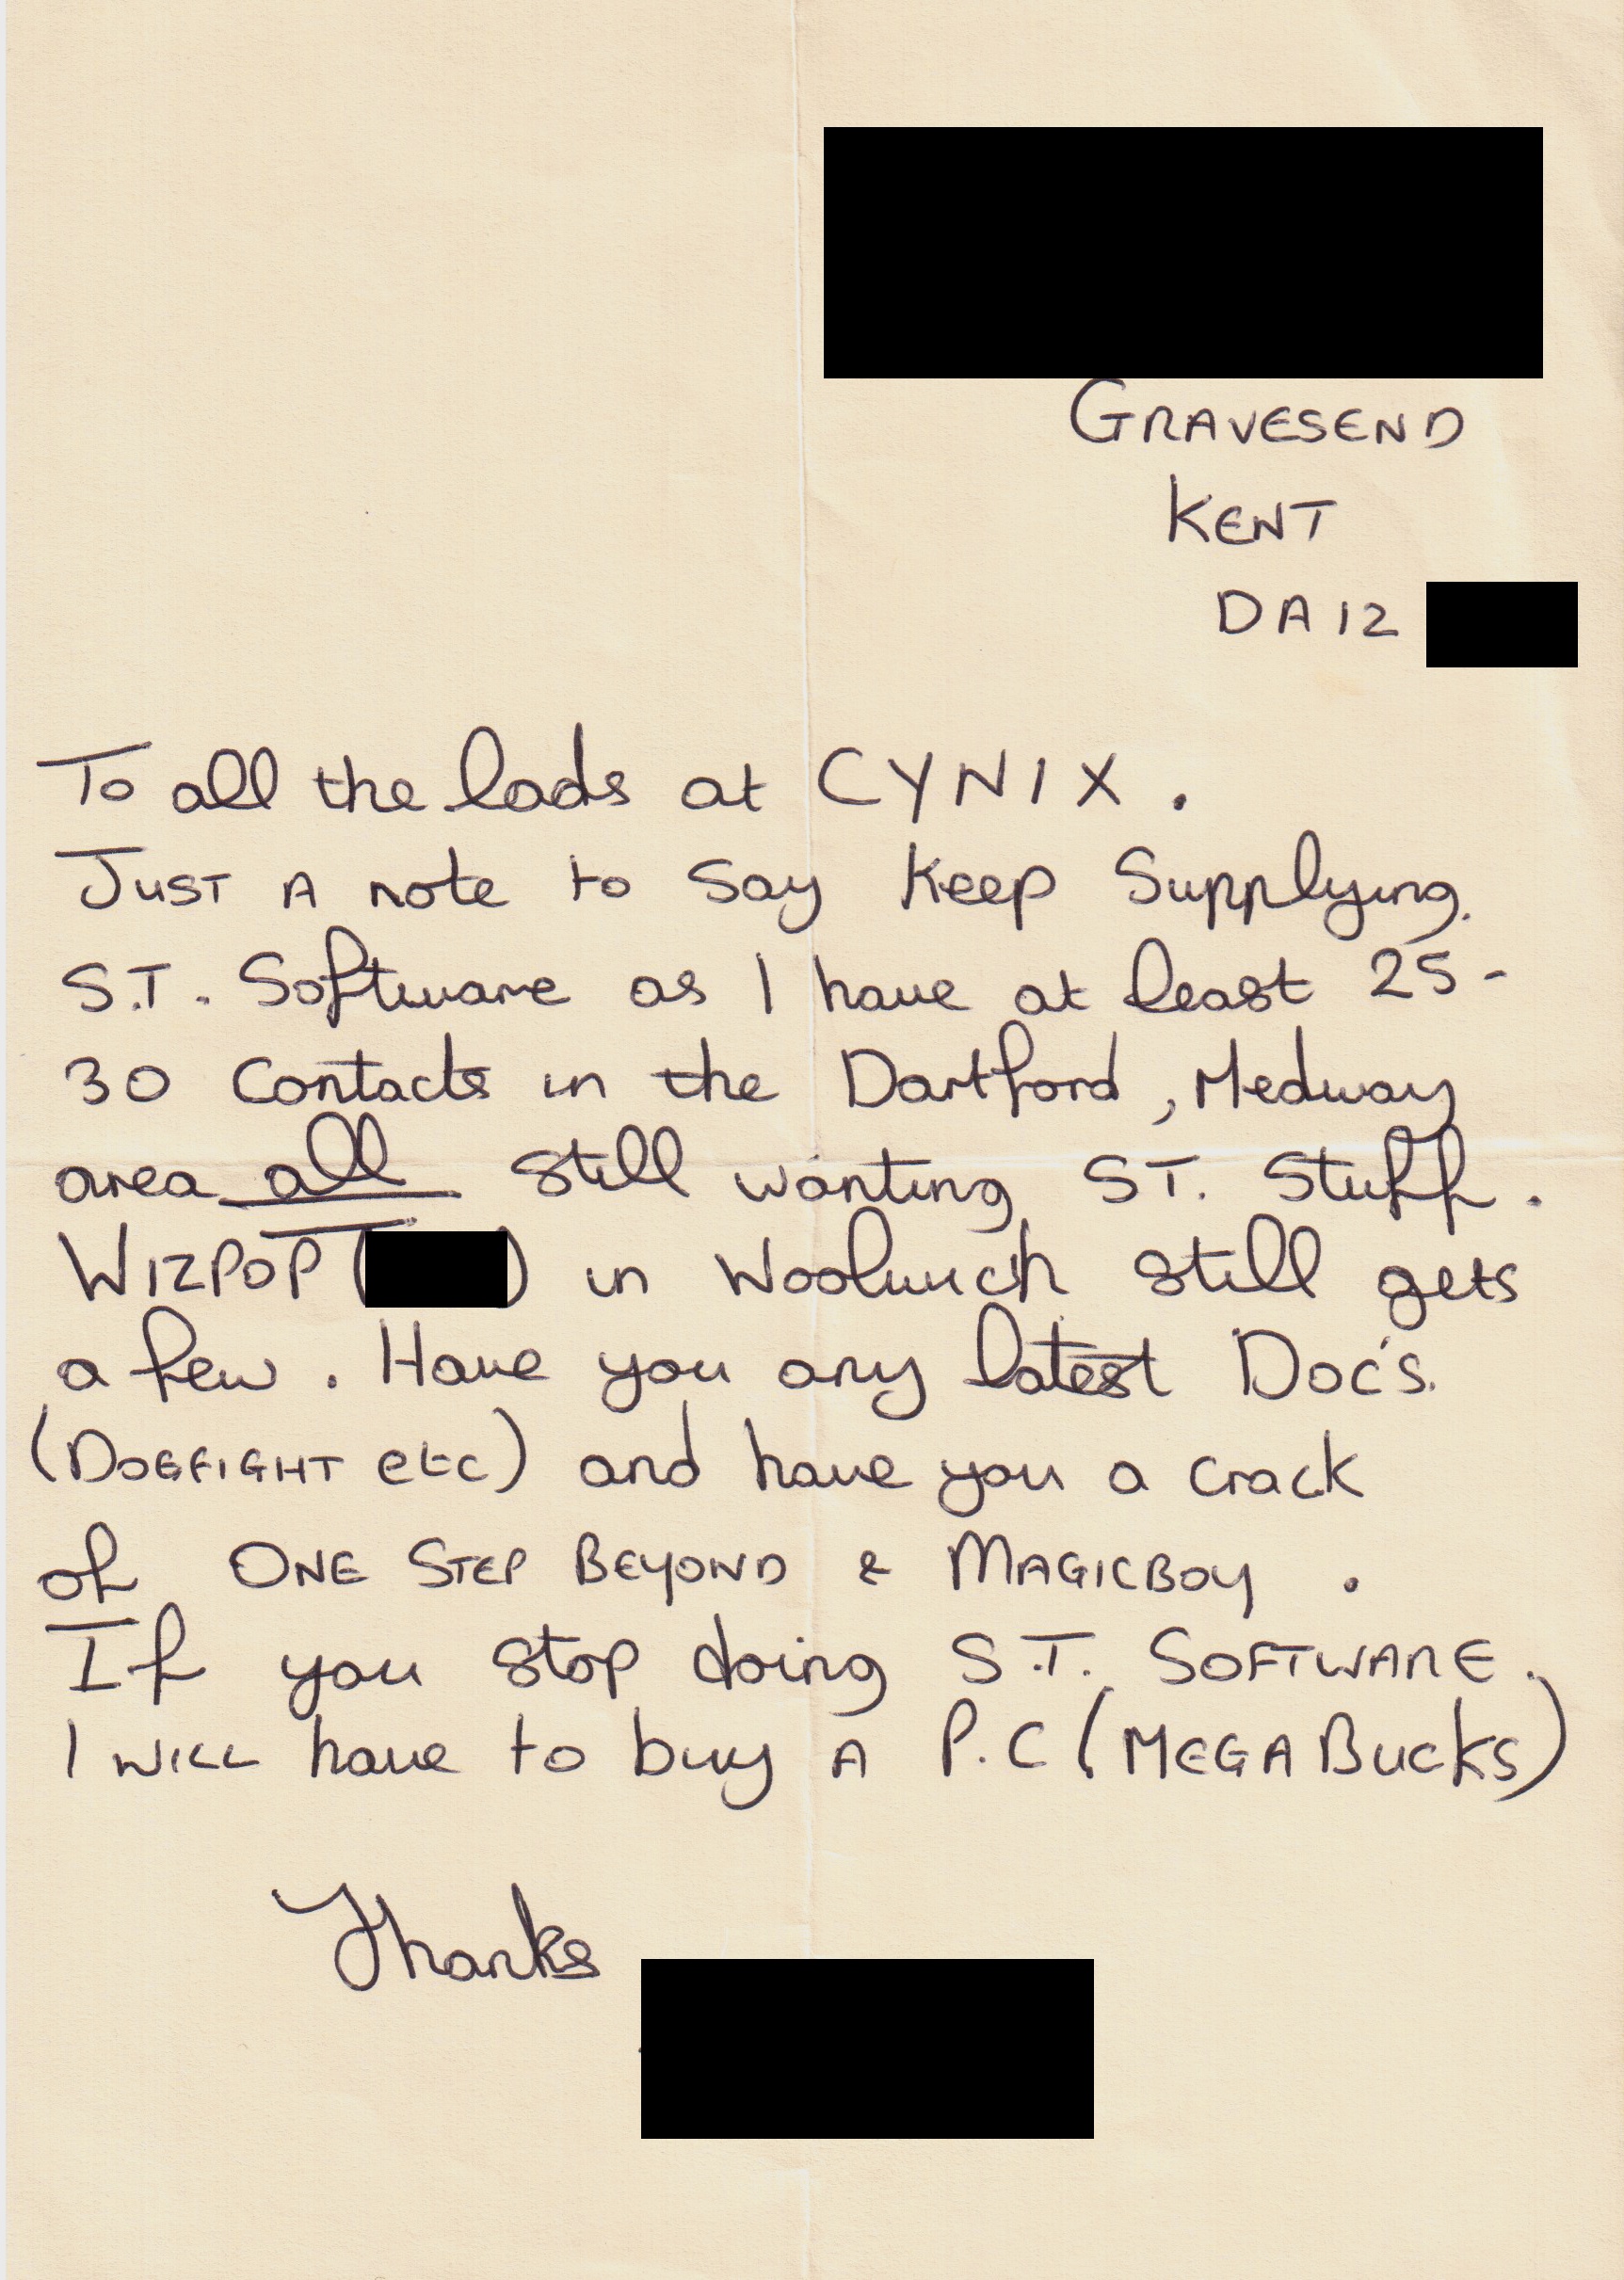 GRAVESEND
KENT
DA12
To all the lads at CYNIX.
JUST A note to say keep Supplying.
S.T. Software as I have at least 25-
30 Contacts in the Dartford, Medway
area all still wanting ST. Stuff.
WIZPOP ( ) in Woolwich still gets
a few. Have you any latest Doc's.
(DOGFIGHT etc) and have you a crack
of ONE STEP BEYOND & MAGICBOY.
If you stop doing S.T. SOFTWARE.
I WILL have to buy A P.C (MEGABUCKS)
Thanks